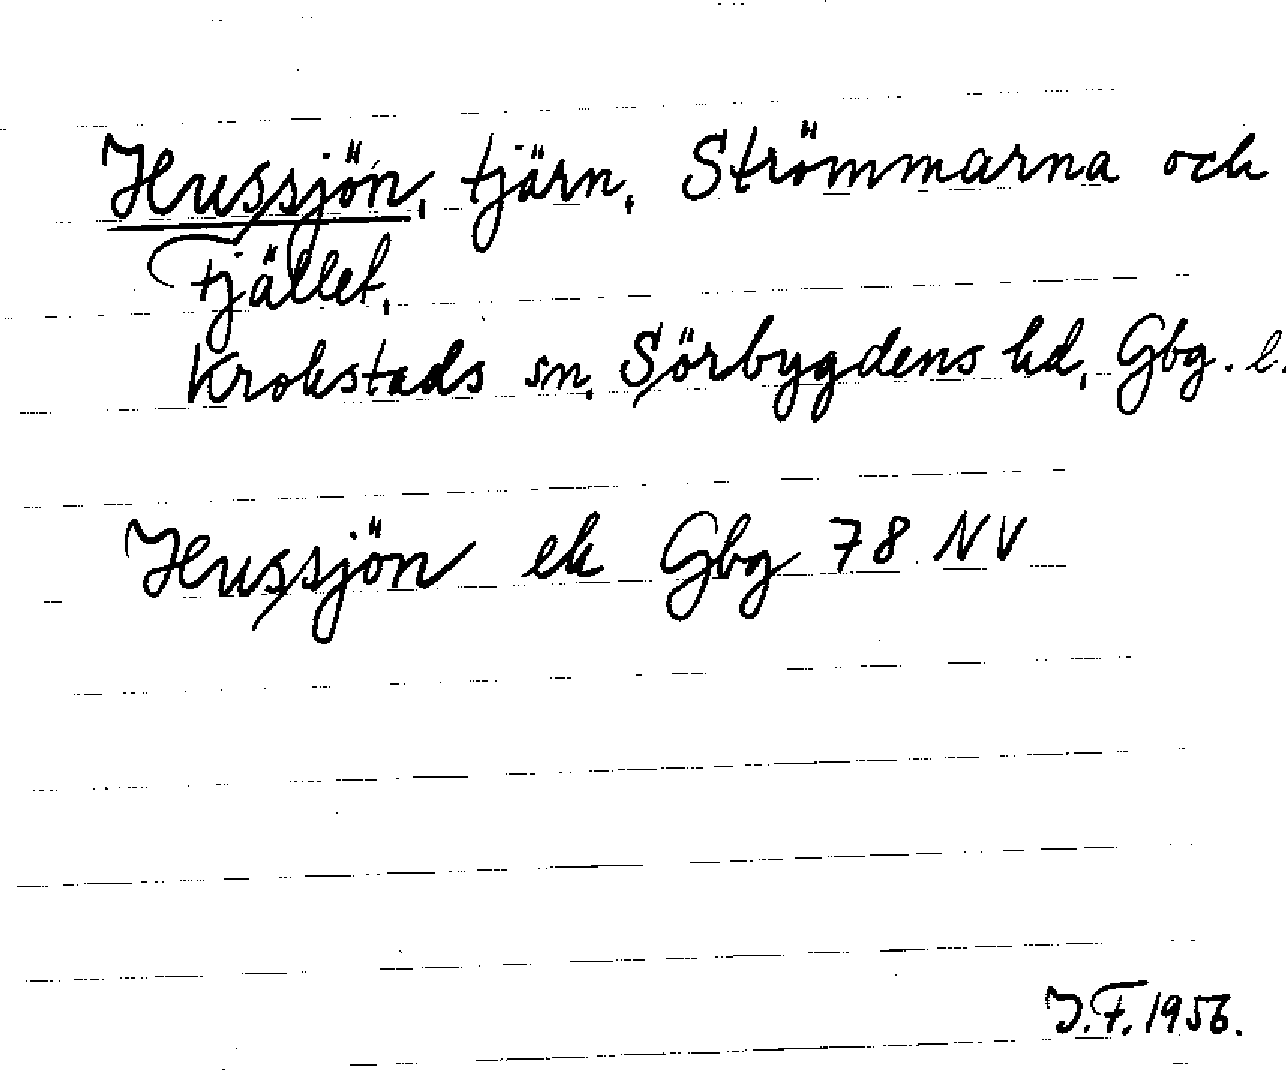 Hussjön, tjärn, Strömmarna och
Fjället,
Krokstads sn. Sörbygdens hd, Gbg. l.
Hussjön ek Gbg 78 NV
J.F. 1956.